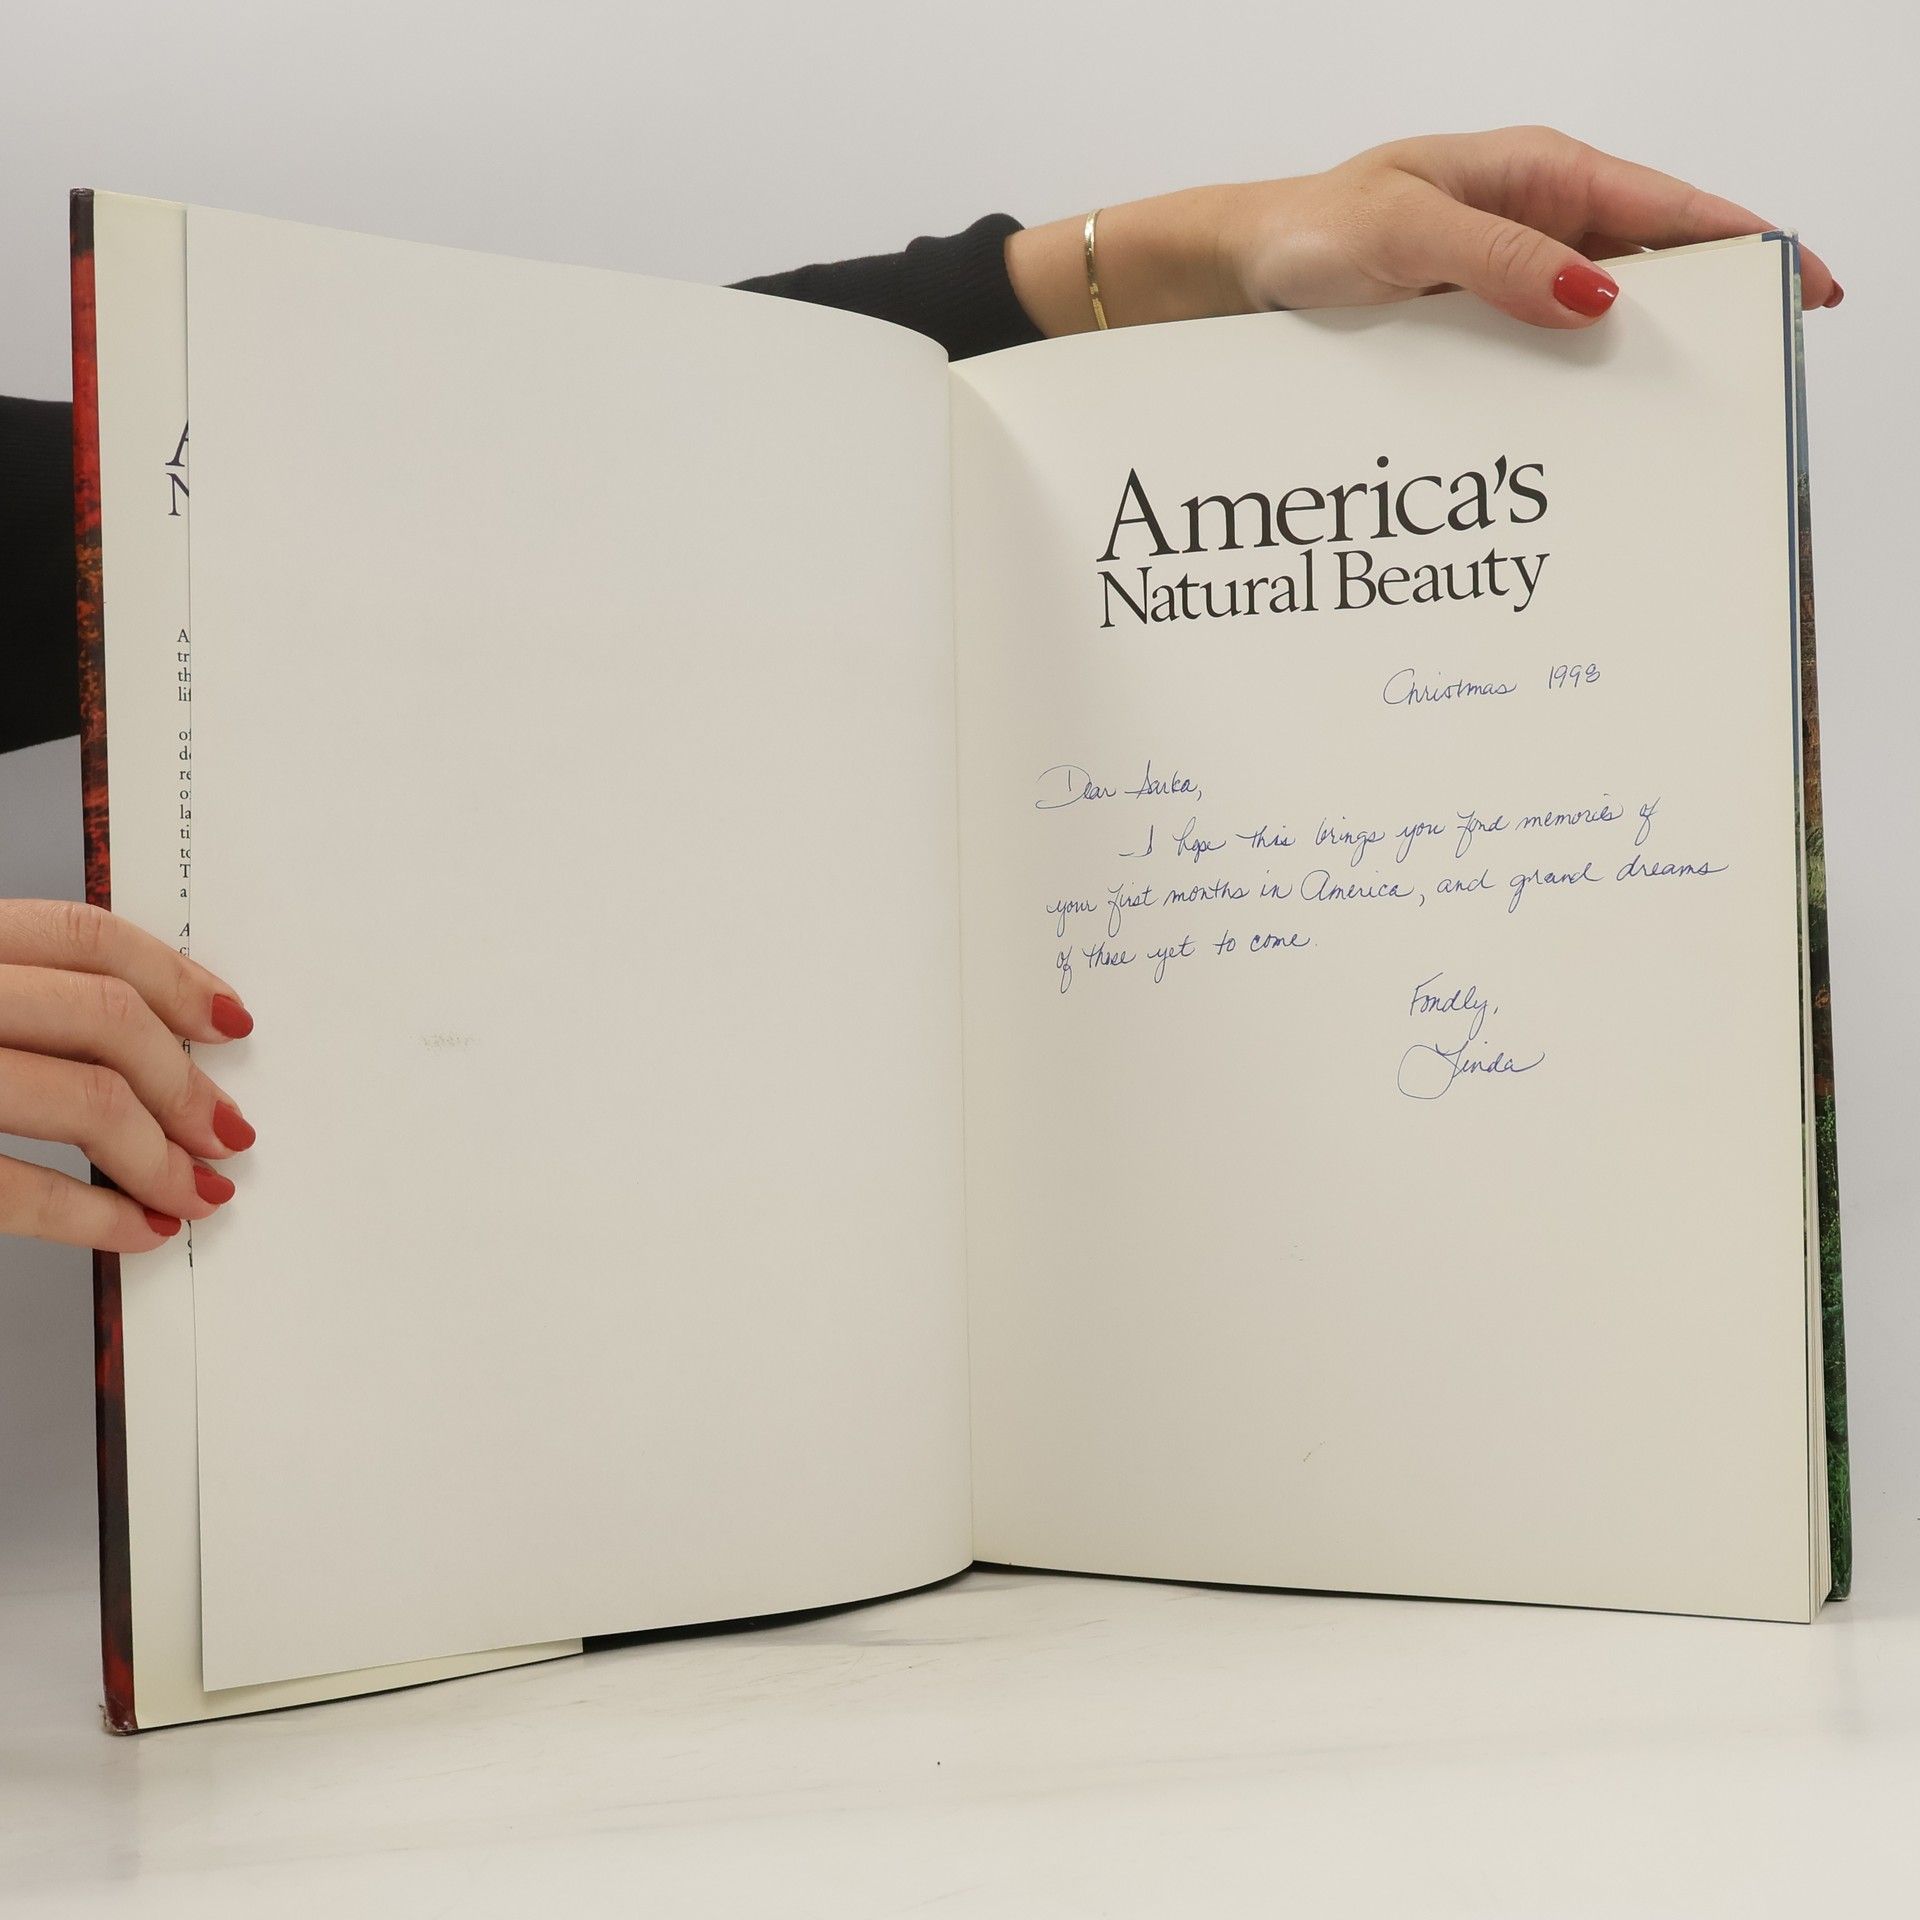 America's
Natural Beauty
Christmas 1998
Dear Sarka,
I hope this brings you fond memories of
your first months in America, and grand dreams
of those yet to come.
Fondly,
Linda
A
N
A
tr
th
lif
of
de
re
of
la
ti
to
T
a
A